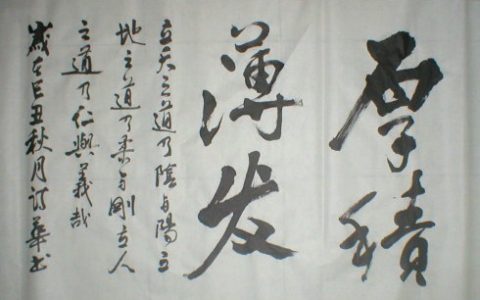 厚積
薄发
立天之道乃陰与陽立
地之道乃柔与剛立人
之道乃仁與義哉
歲在己丑秋月華书